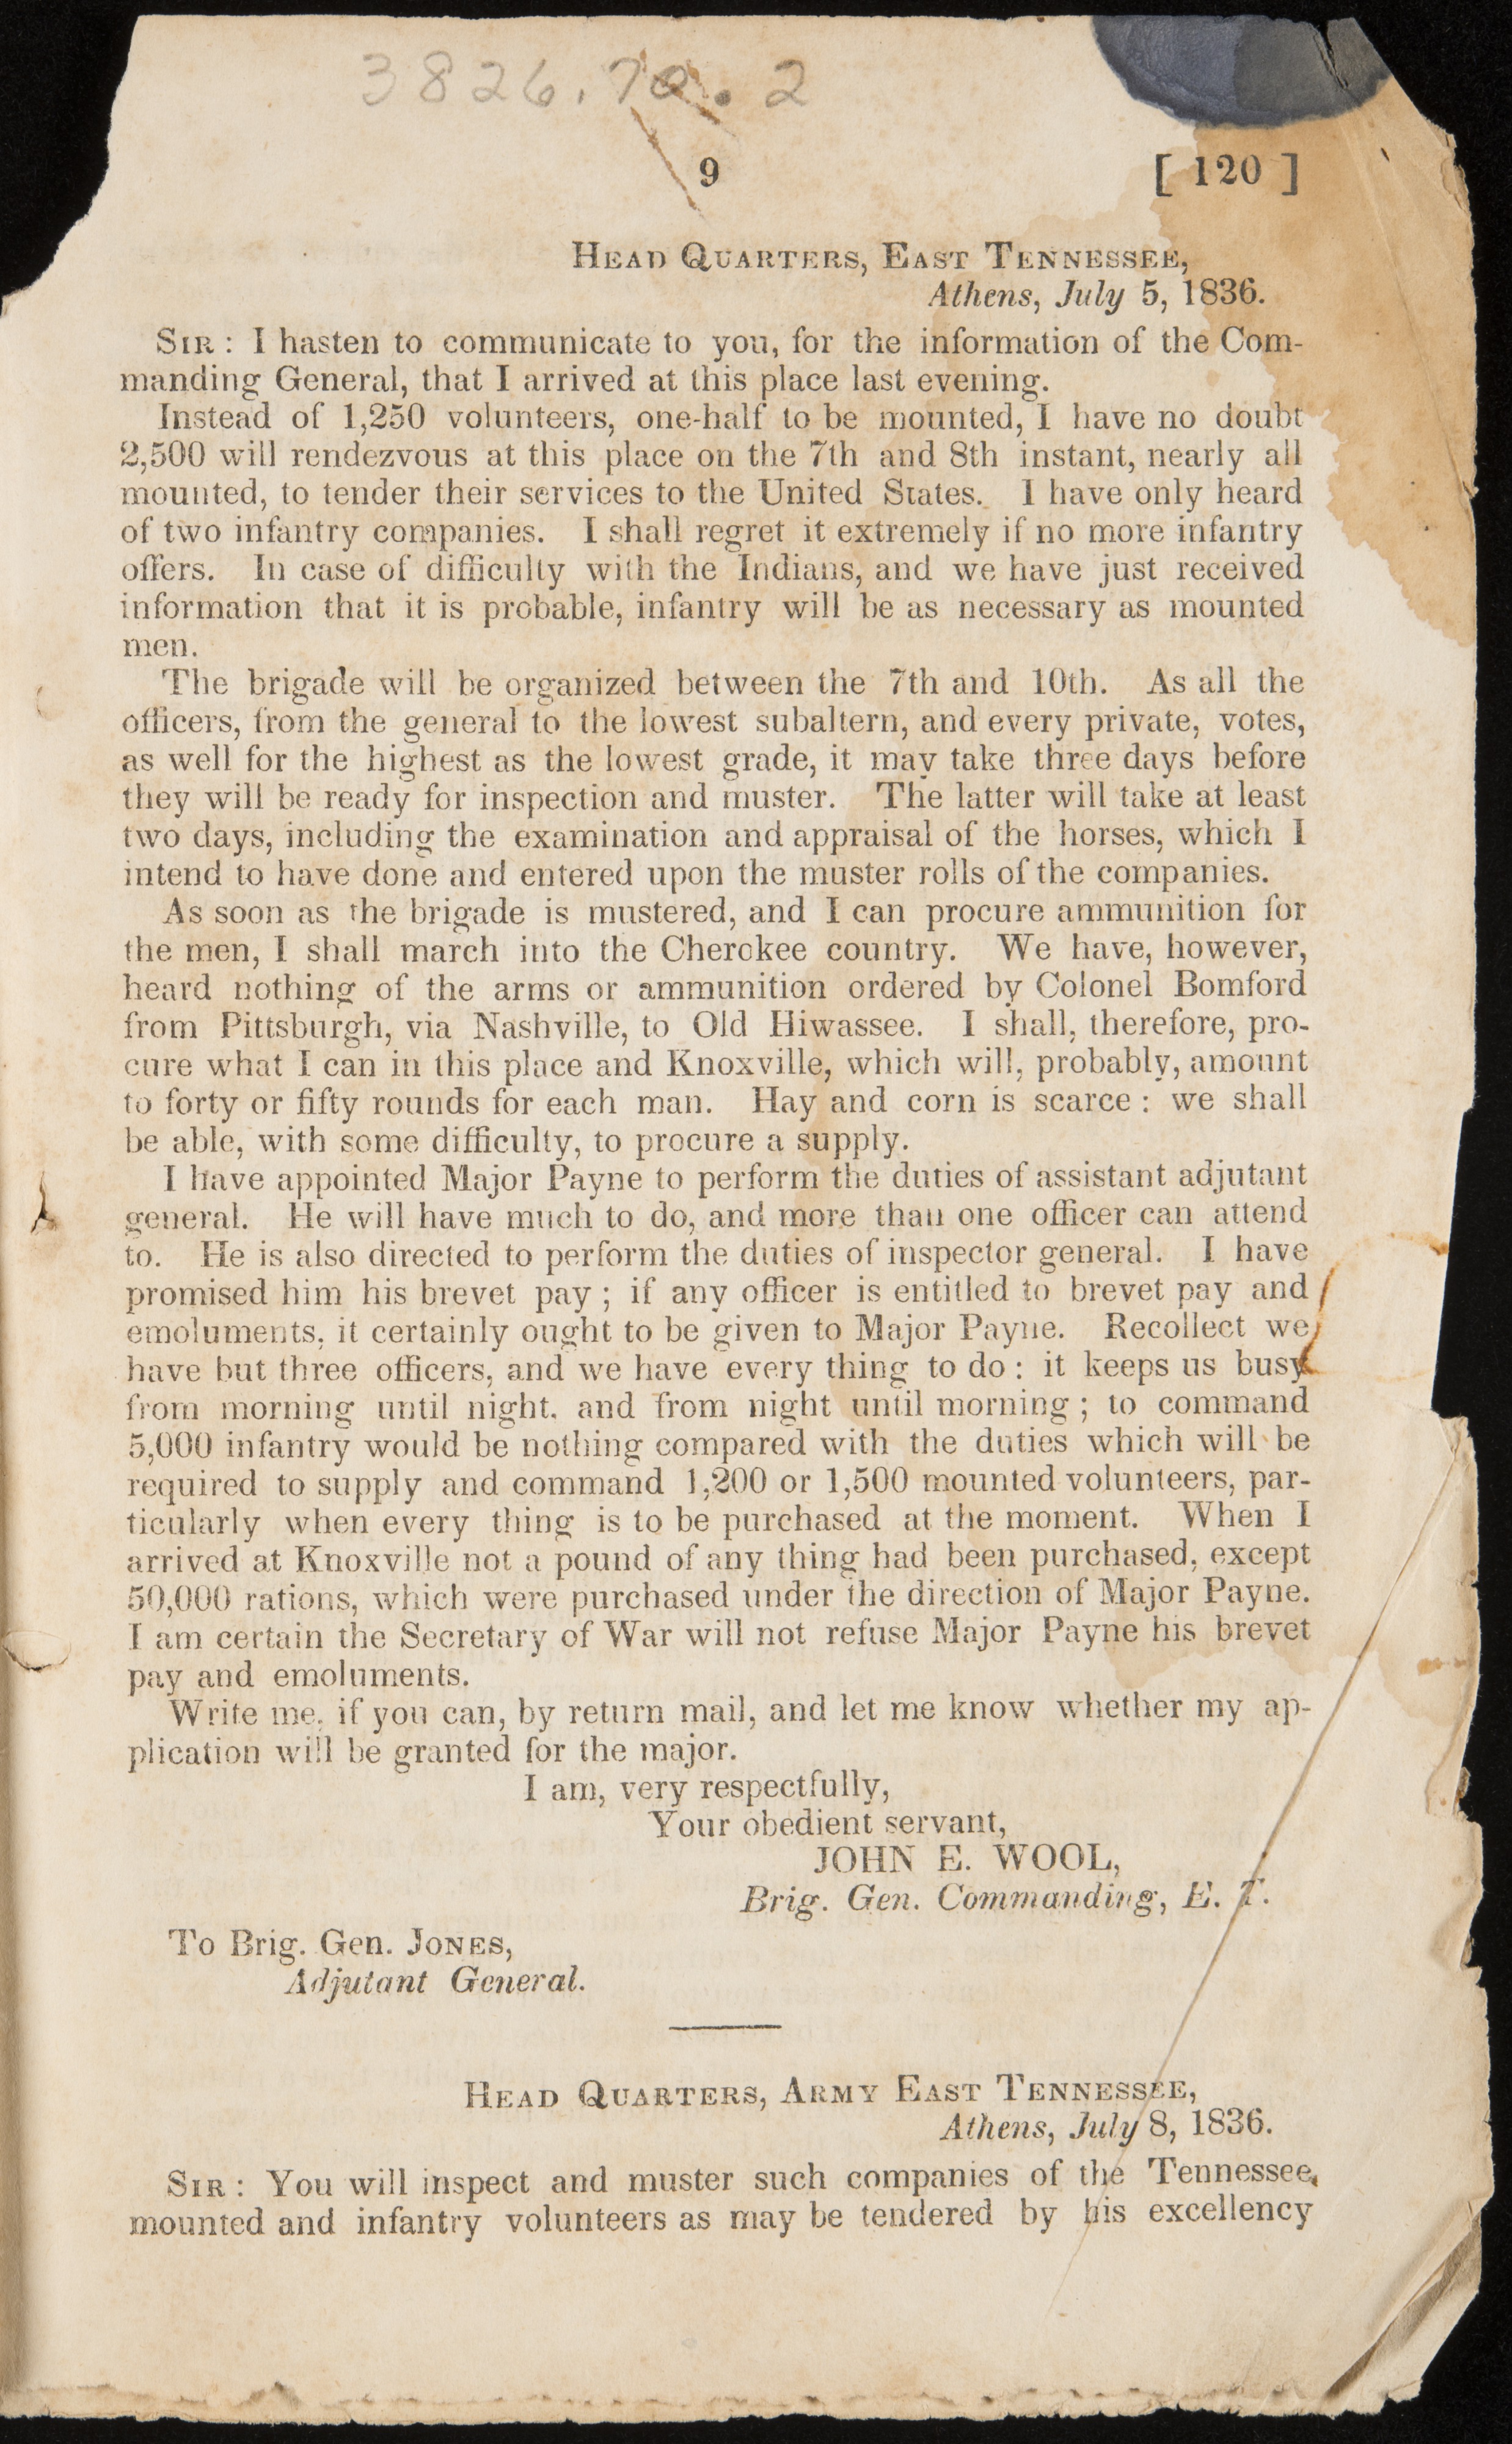 3826.70.2
9 [ 120 ]
HEAD QUARTERS, EAST TENNESSEE,
Athens, July 5, 1836.
SIR : I hasten to communicate to you, for the information of the Com-
manding General, that I arrived at this place last evening.
Instead of 1,250 volunteers, one-half to be mounted, I have no doubt
2,500 will rendezvous at this place on the 7th and 8th instant, nearly all
mounted, to tender their services to the United States. I have only heard
of two infantry companies. I shall regret it extremely if no more infantry
offers. In case of difficulty with the Indians, and we have just received
information that it is probable, infantry will be as necessary as mounted
men.
The brigade will be organized between the 7th and 10th. As all the
officers, from the general to the lowest subaltern, and every private, votes,
as well for the highest as the lowest grade, it may take three days before
they will be ready for inspection and muster. The latter will take at least
two days, including the examination and appraisal of the horses, which I
intend to have done and entered upon the muster rolls of the companies.
As soon as the brigade is mustered, and I can procure ammunition for
the men, I shall march into the Cherokee country. We have, however,
heard nothing of the arms or ammunition ordered by Colonel Bomford
from Pittsburgh, via Nashville, to Old Hiwassee. I shall, therefore, pro-
cure what I can in this place and Knoxville, which will, probably, amount
to forty or fifty rounds for each man. Hay and corn is scarce : we shall
be able, with some difficulty, to procure a supply.
I have appointed Major Payne to perform the duties of assistant adjutant
general. He will have much to do, and more than one officer can attend
to. He is also directed to perform the duties of inspector general. I have
promised him his brevet pay ; if any officer is entitled to brevet pay and
emoluments, it certainly ought to be given to Major Payne. Recollect we
have but three officers, and we have every thing to do : it keeps us busy
from morning until night, and from night until morning ; to command
5,000 infantry would be nothing compared with the duties which will be
required to supply and command 1,200 or 1,500 mounted volunteers, par-
ticularly when every thing is to be purchased at the moment. When I
arrived at Knoxville not a pound of any thing had been purchased, except
50,000 rations, which were purchased under the direction of Major Payne.
I am certain the Secretary of War will not refuse Major Payne his brevet
pay and emoluments.
Write me, if you can, by return mail, and let me know whether my ap-
plication will be granted for the major.
I am, very respectfully,
Your obedient servant,
JOHN E. WOOL,
Brig. Gen. Commanding, E. T.
To Brig. Gen. JONES,
Adjutant General.
HEAD QUARTERS, ARMY EAST TENNESSEE,
Athens, July 8, 1836.
SIR : You will inspect and muster such companies of the Tennessee
mounted and infantry volunteers as may be tendered by his excellency